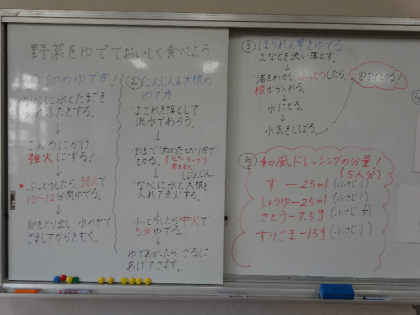 野菜をゆでておいしく食べよう
① 卵のゆで方!
なべに水とたまごを
入れふたをする。
↓
こんろにかけ
強火にする!
↓
ふっとうしたら、弱火で
10〜12分間ゆでる。
↓
卵をとり出し、水の中で
さましてからをむく。
② にんじん&大根の
ゆで方
よごれを落として
流水であらう。
↓
できる。
↓
なべに水と大根を
入れて火にする。
↓
ふっとうしたら中火で
5分ゆでる。
↓
ゆであがったら、ざるに
あげてさます。
③ ほうれん草をゆでる。
土などを洗い落とす。
↓
湯をわかし、ふっとうしたら、
根から入れる。
↓
水にとる。
↓
水気をしぼる。
⑤ 和風ドレッシングの分量!
(5人分)
す ー 25ml (小さじ1)
しょうゆ ー 25ml (小さじ1)
さとう ー 7.5g
すりごま ー 15g (小さじ1)